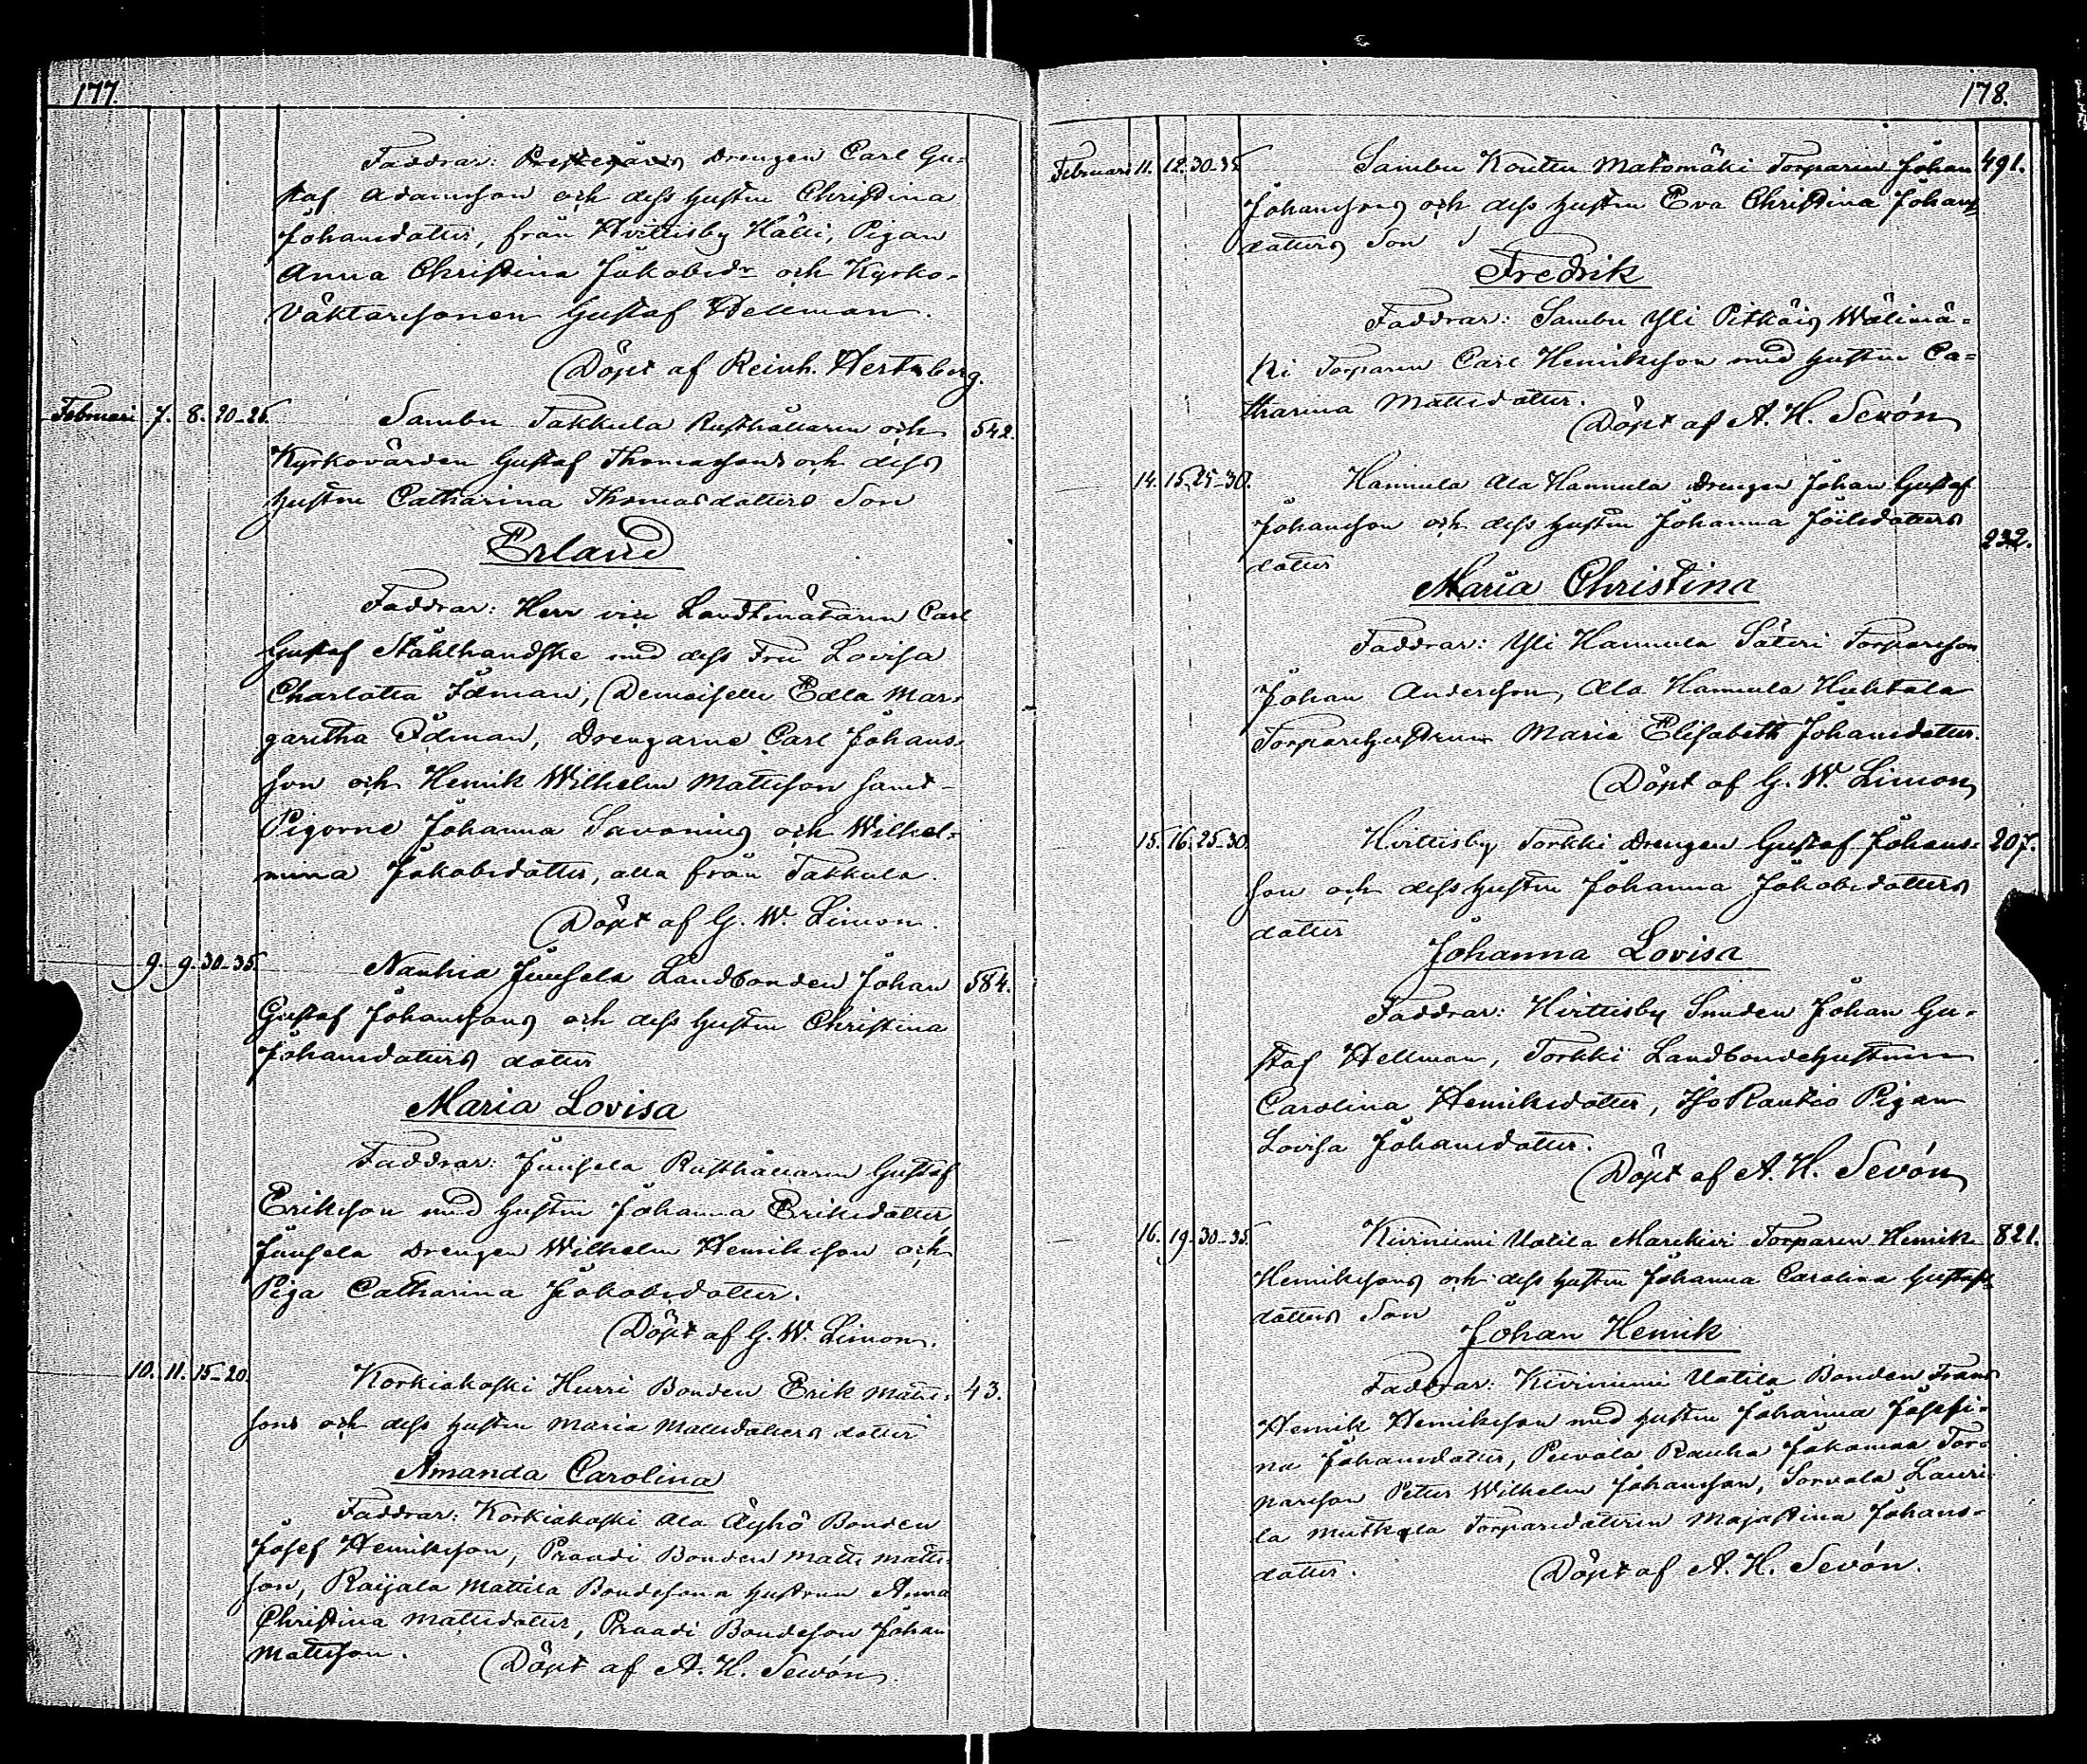 177.
Faddrar: Drengen Carl Gu-
staf Adamsson och dess hustru Christina
Johansdotter, från Hvittisby Hälli, Pigan
Anna Christina Jakobsdr och Kyrko-
väktaresonen Gustaf Hellman.
Döpt af Reinh. Hertzberg.
Februari 7. 8. 20-25. Sambu Takkula Rusthållaren och 542.
Kyrkovärden Gustaf Thomassons och dess
hustru Catharina Thomasdotters Son
Erland
Faddrar: Herr vice Landtmätaren Carl
Gustaf Stålhandske med dess Fru Lovisa
Charlotta Idman, Demoiselle Edla Mar-
garetha Idman, Drengarne Carl Johans-
son och Henrik Wilhelm Mattsson samt
Pigorne Johanna Savonius och Wilhel-
mina Jakobsdotter, alla från Takkula.
Döpt af G. W. Limon.
9. 9. 30-35. Nanhia Juusela Landbonden Johan 584.
Gustaf Johanssons och dess hustru Christina
Johansdotters dotter
Maria Lovisa
Faddrar: Juusela Rusthållaren Gustaf
Eriksson med hustru Johanna Eriksdotter,
Juusela Drengen Wilhelm Henriksson och
Piga Catharina Jakobsdotter.
Döpt af G. W. Limon.
10. 11. 15-20. Korkiakoski Hurri Bonden Erik Matts- 43.
sons och dess hustru Maria Mattsdotters dotter
Amanda Carolina
Faddrar: Korkiakoski Ala Äyhö Bonden
Josef Henriksson, Praadi Bonden Matts Matts-
son, Raijala Mattila Bondesona hustrun Anna
Christina Mattsdotter, Praadi Bondeson Johan
Mattsson. Döpt af A. H. Sevón.
178.
Februari 11. 12. 30-35. Sambu Kouttu Matomäki Torparen Johan 491.
Johanssons och dess hustru Eva Christina Johans-
dotters Son
Fredrik
Faddrar: Sambu Yli Pitkäis Wälimä-
ki Torparen Carl Henriksson med hustru Ca-
tharina Mattsdotter.
Döpt af A. H. Sevón
14. 15. 25-30. Hannula Ala Hannula Drengen Johan Gustaf
Johansson och dess hustru Johanna Joelsdotters
dotter 232.
Maria Christina
Faddrar: Yli Hannula Säteri Torpareson
Johan Andersson, Ala Hannula Huhtala
Torparehustrun Maria Elisabeth Johansdotter.
Döpt af G. W. Limon
15. 16. 25-30. Hvittisby Torkki Drengen Gustaf Johans- 207.
son och dess hustru Johanna Jakobsdotters
dotter
Johanna Lovisa
Faddrar: Hvittisby Smeden Johan Gu-
staf Hellman, Torkki Landbondehustrun
Carolina Henriksdotter, Iso Rautio Pigan
Lovisa Johansdotter.
Döpt af A. H. Sevón
16. 19. 30-35. Kiviniemi Uotila Torparen Henrik 821.
Henrikssons och dess hustru Johanna Carolina Gustafs-
dotters Son
Johan Henrik
Faddrar: Kiviniemi Uotila Bonden Frans
Henrik Henriksson med hustru Johanna Josefi-
na Johansdotter, Rauha Jakomaa Tor-
pareson Petter Wilhelm Johansson, Sorvala Lauri-
la Torparedottren Majastina Johans-
dotter. Döpt af A. H. Sevón.